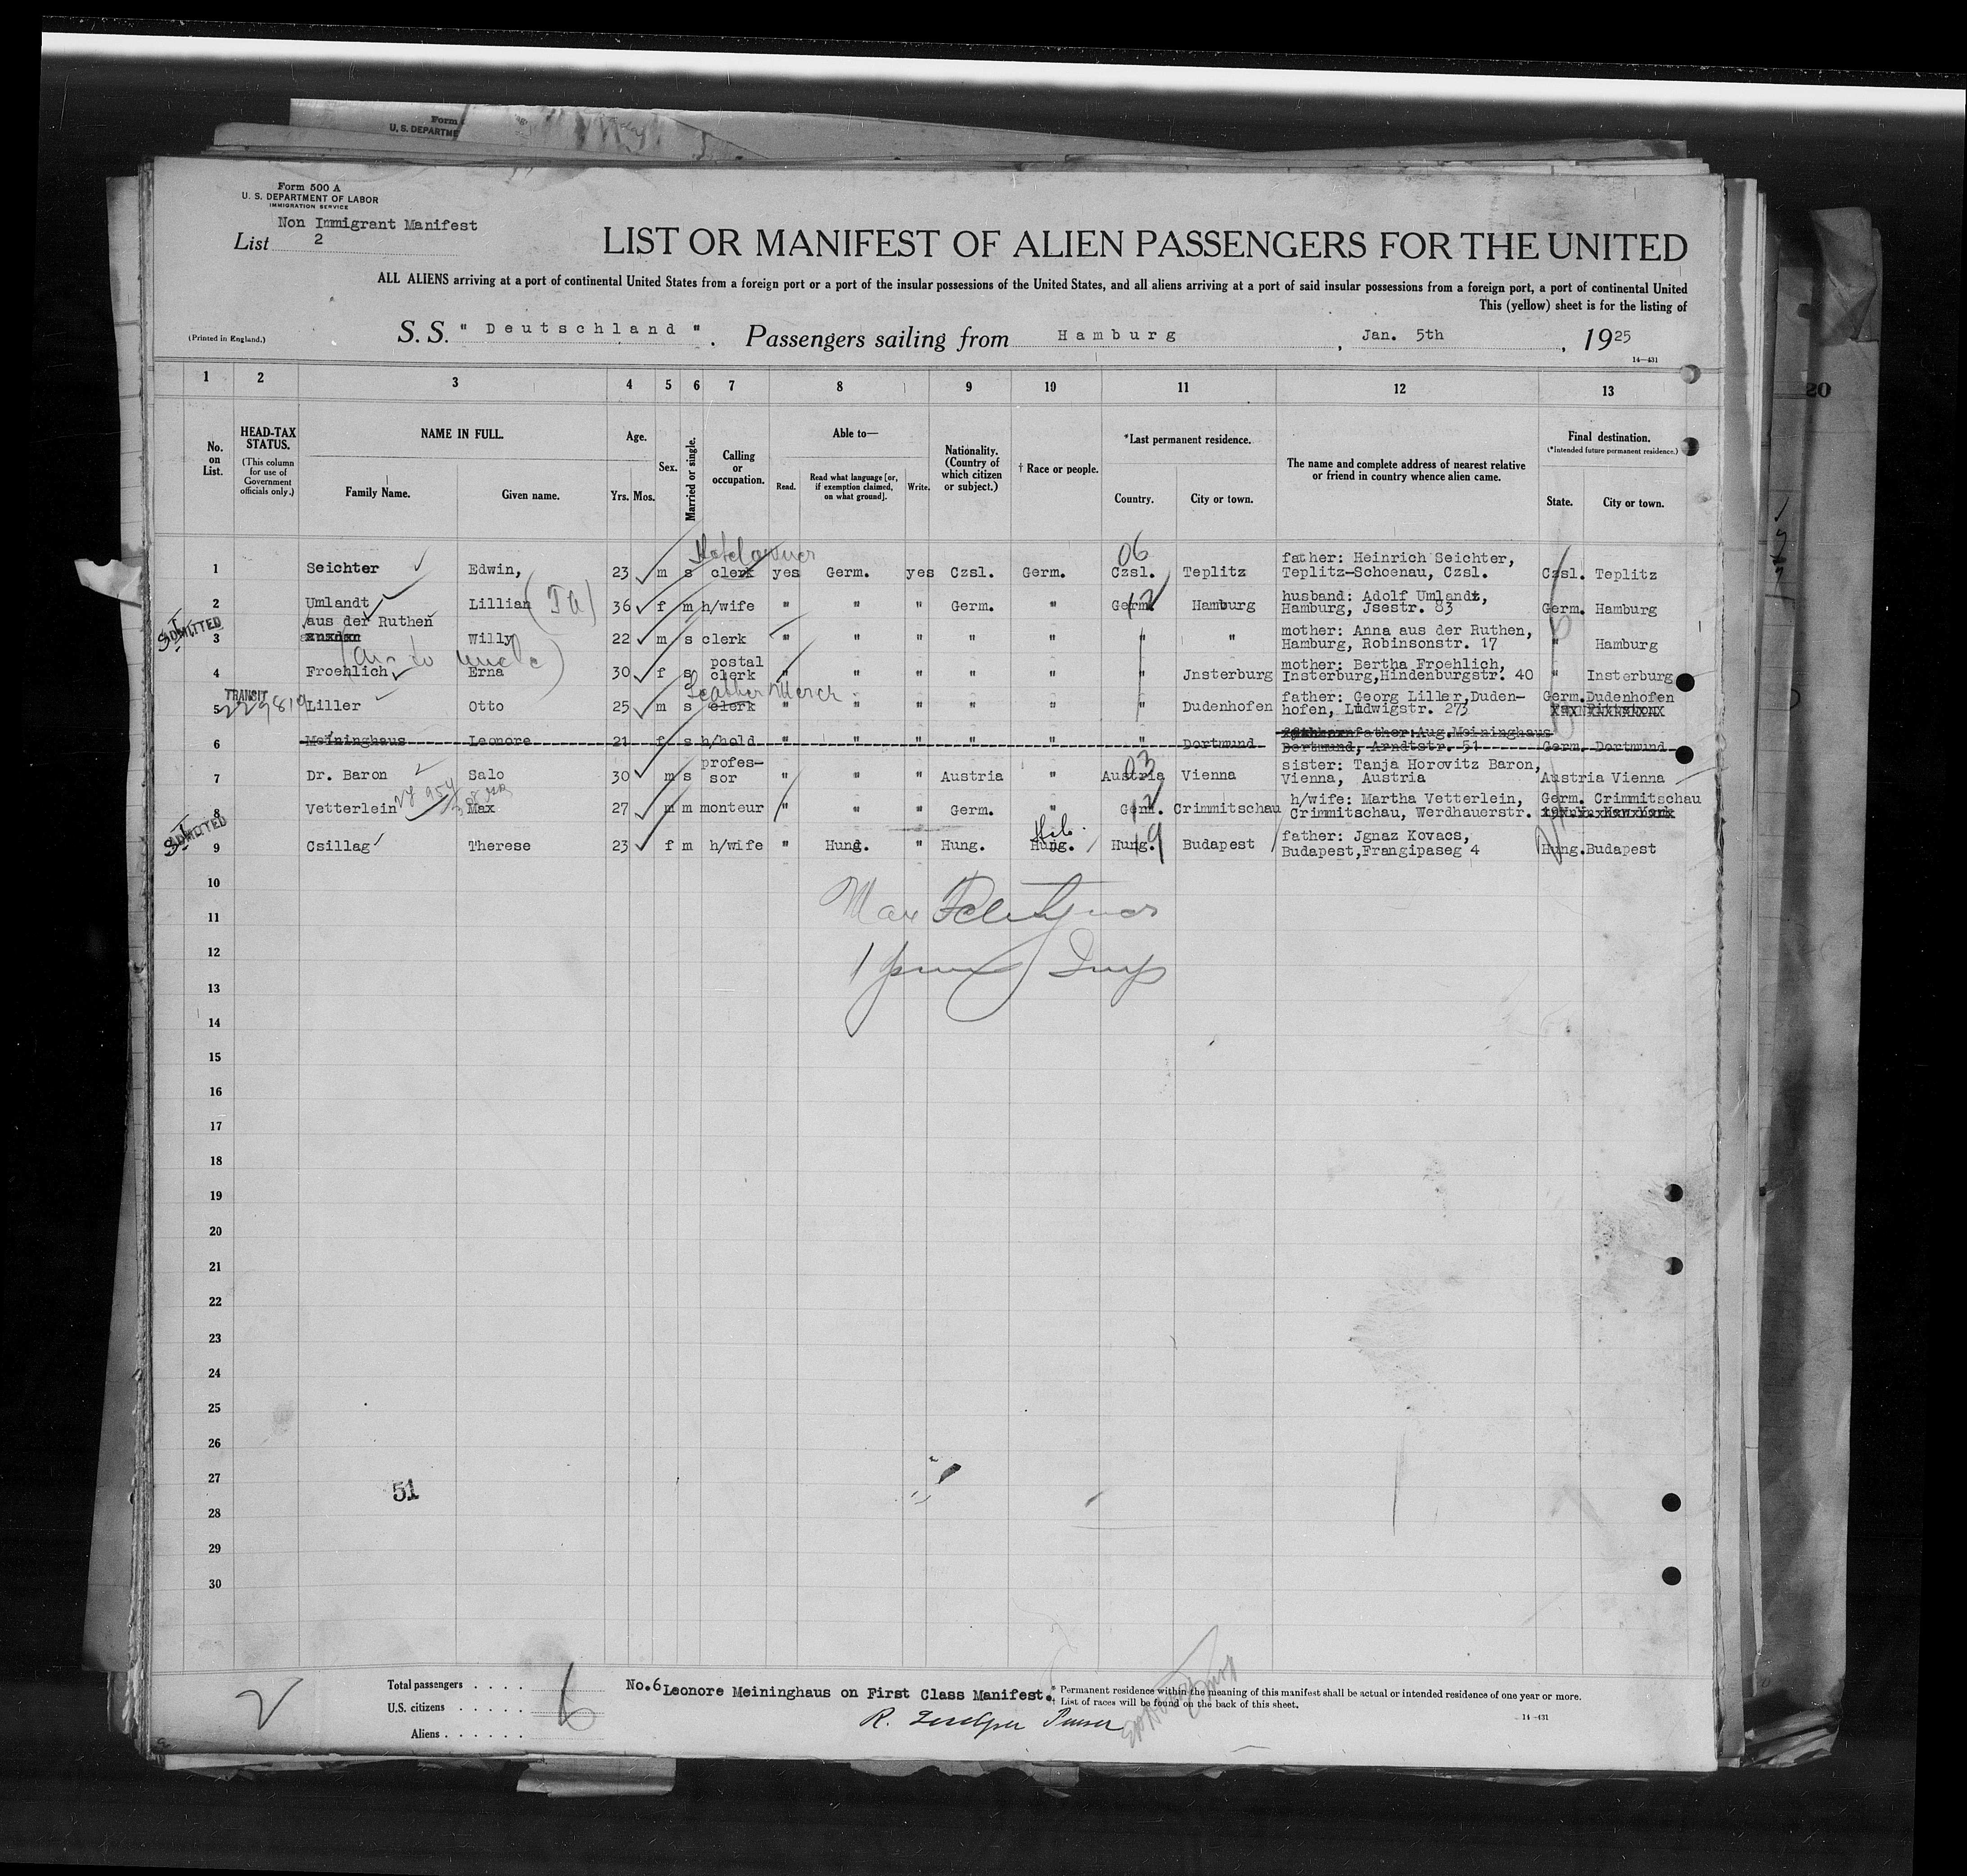 Form
U. S. DEPARTME
Form 500 A
U. S. DEPARTMENT OF LABOR
IMMIGRATION SERVICE
Non Immigrant Manifest
List 2
LIST OR MANIFEST OF ALIEN PASSENGERS FOR THE UNITED
ALL ALIENS arriving at a port of continental United States from a foreign port or a port of the insular possessions of the United States, and all aliens arriving at a port of said insular possessions from a foreign port, a port of continental United
This (yellow) sheet is for the listing of
(Printed in England.)
S. S. " Deutschland ". Passengers sailing from Hamburg, Jan. 5th, 1925
14—431
1 2 3 4 5 6 7 8 9 10 11 12 13
20
No. on List.
HEAD-TAX STATUS.
(This column for use of Government officials only.)
NAME IN FULL.
Family Name. Given name.
Age.
Yrs. Mos.
Sex.
Married or single.
Calling or occupation.
Able to—
Read. Read what language [or, if exemption claimed, on what ground]. Write.
Nationality. (Country of which citizen or subject.)
† Race or people.
*Last permanent residence.
Country. City or town.
The name and complete address of nearest relative or friend in country whence alien came.
Final destination.
(*Intended future permanent residence.)
State. City or town.
Hotel owner 06
1 Seichter Edwin, 23 m s clerk yes Germ. yes Czsl. Germ. Czsl. Teplitz father: Heinrich Seichter, Teplitz-Schoenau, Czsl. Czsl. Teplitz
2 Umlandt Lillian 36 f m h/wife " " " Germ. " Germ. 12 Hamburg husband: Adolf Umlandt, Hamburg, Jsestr. 83 Germ. Hamburg
SI ADMITTED
3 aus der Ruthen Willy 22 m s clerk " " " " " " " mother: Anna aus der Ruthen, Hamburg, Robinsonstr. 17 " Hamburg
uncle
4 Froehlich Erna 30 f s postal clerk " " " " " " Jnsterburg mother: Bertha Froehlich, Insterburg,Hindenburgstr. 40 " Insterburg
TRANSIT
Leather Merch
5 Liller Otto 25 m s clerk " " " " " " Dudenhofen father: Georg Liller,Dudenhofen, Ludwigstr. 273 Germ. Dudenhofen
6 Meininghaus Leonore 21 f s h/hold " " " " " " Dortmund father:Aug.Meininghaus Dortmund, Arndtstr. 51 Germ. Dortmund
03
7 Dr. Baron Salo 30 m s professor " " " Austria " Austria Vienna sister: Tanja Horovitz Baron, Vienna, Austria Austria Vienna
8 Vetterlein Max 27 m m monteur " " " Germ. " Germ. 12 Crimmitschau h/wife: Martha Vetterlein, Crimmitschau, Werdhauerstr. Germ. Crimmitschau
SI ADMITTED
Heb.
9 Csillag Therese 23 f m h/wife " Hung. " Hung. Hung. Hung. 19 Budapest father: Jgnaz Kovacs, Budapest,Frangipaseg 4 Hung. Budapest
10
11
12
13
14
15
16
17
18
19
20
21
22
23
24
25
26
27
51
28
29
30
Total passengers . . . .
U.S. citizens . . . . . .
Aliens . . . . . . .
No.6 Leonore Meininghaus on First Class Manifest.
* Permanent residence within the meaning of this manifest shall be actual or intended residence of one year or more.
† List of races will be found on the back of this sheet.
14—431